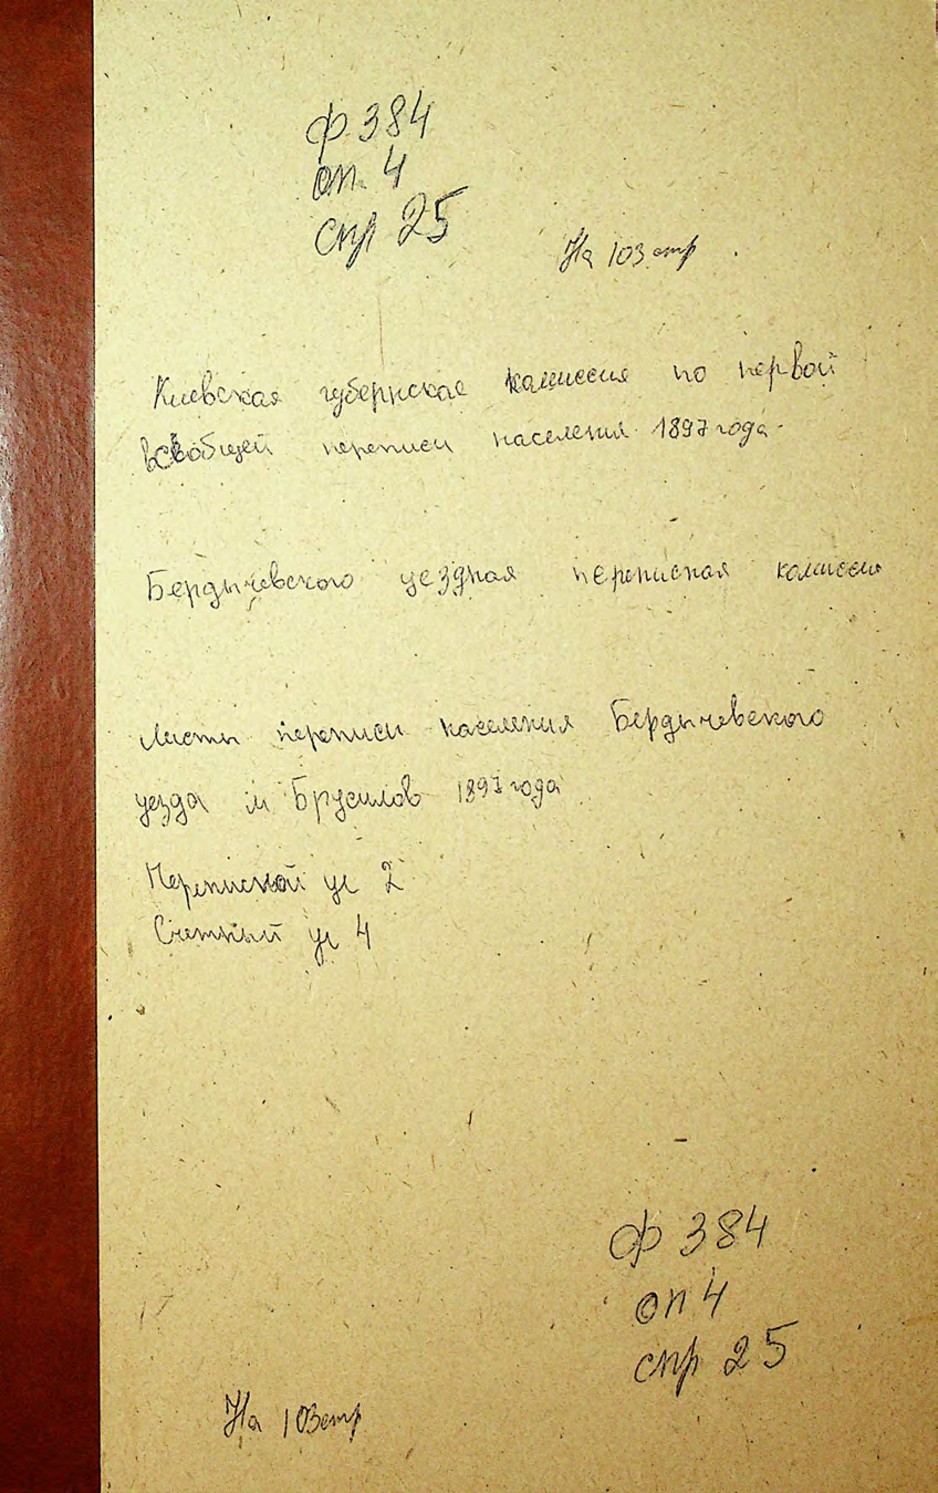 ф 384
оп. 4
спр 25
На 103 стр
Киевская губернская комиссия по первой
всеобщей переписи населения 1897 года.
Бердычевского уездная переписная комиссия
Листы переписи населения Бердычевского
уезда м Брусилов 1897 года
Переписной уч 2
Счетный уч 4
ф 384
оп 4
спр 25
На 103 стр